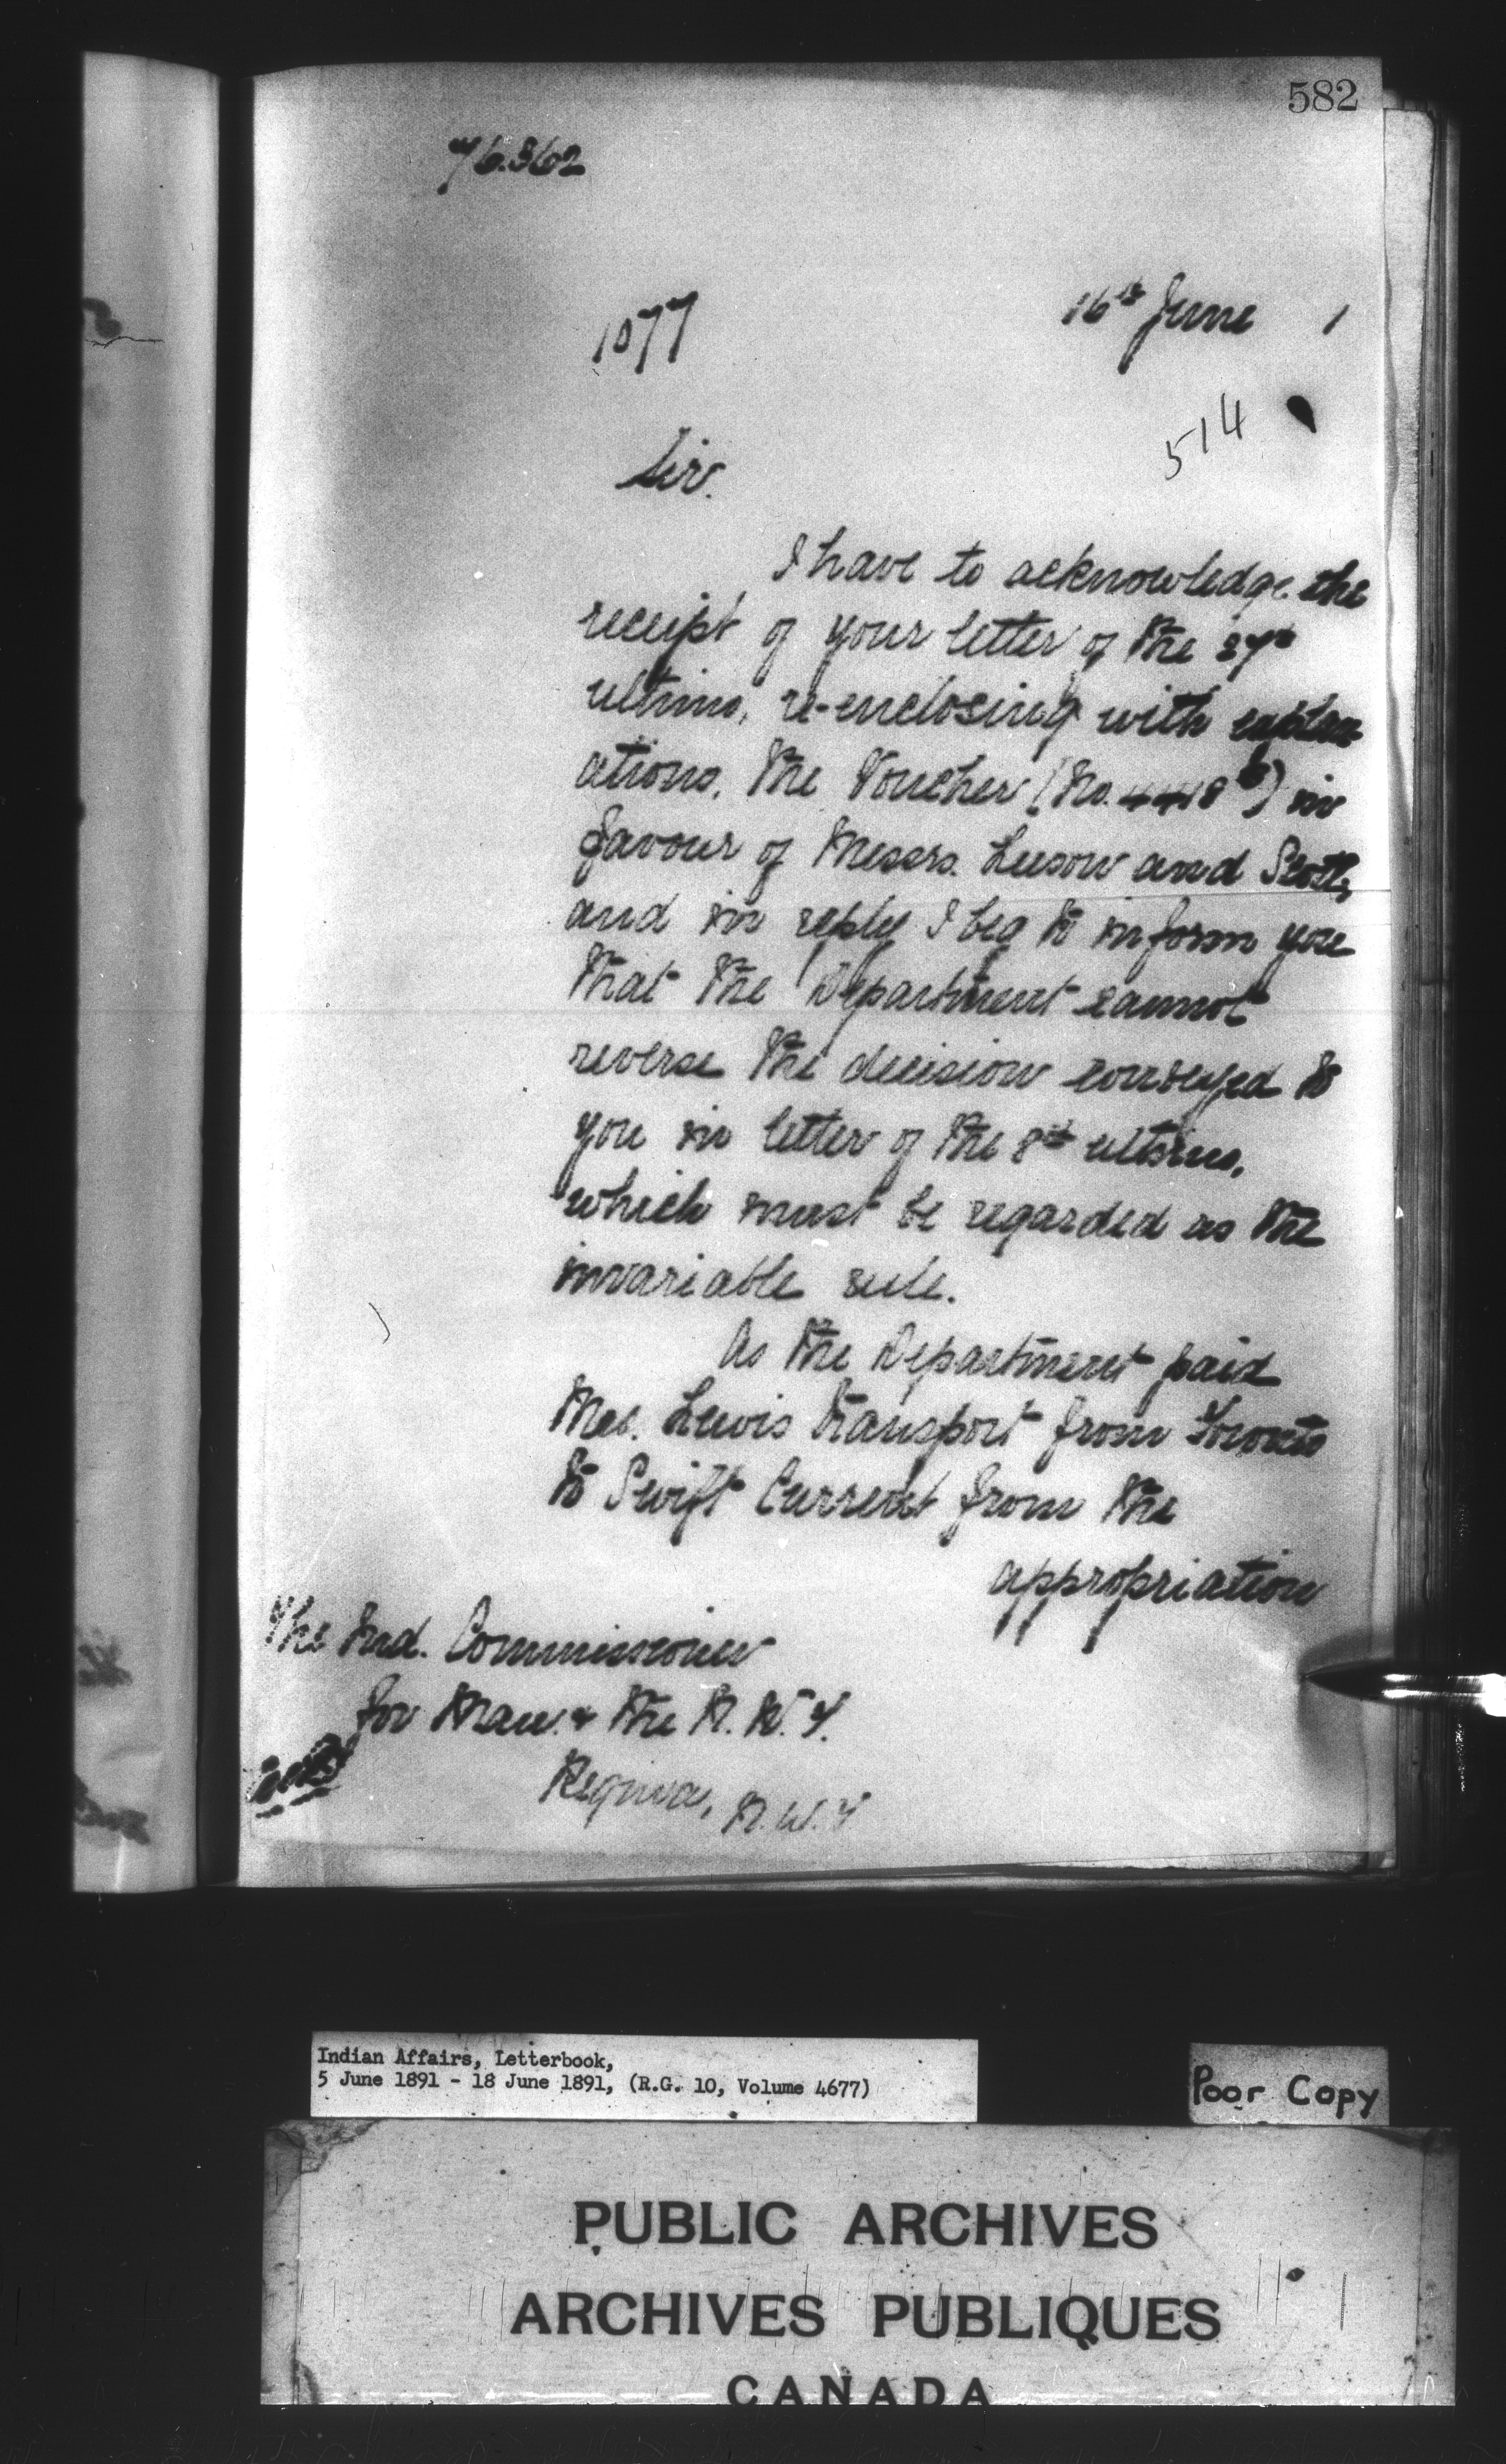 582
76.362
1077
16th June 1
514
Sir.
I have to acknowledge the
receipt of your letter of the 27th
ultimo, re-enclosing with explan
ations, the Voucher (No. 4418 b) in
favour of Messrs. Leeson and Scott,
and in reply I beg to inform you
that the Department cannot
reverse the decision conveyed to
you in letter of the 8th ultimo,
which must be regarded as the
invariable rule.
As the Department paid
Lewis transport from Toronto
to Swift Current from the
appropriation
The Ind. Commissioner
for Man. & the N. W. T.
Regina, N.W.T
Indian Affairs, Letterbook,
5 June 1891 - 18 June 1891, (R.G. 10, Volume 4677)
Poor Copy
PUBLIC ARCHIVES
ARCHIVES PUBLIQUES
CANADA